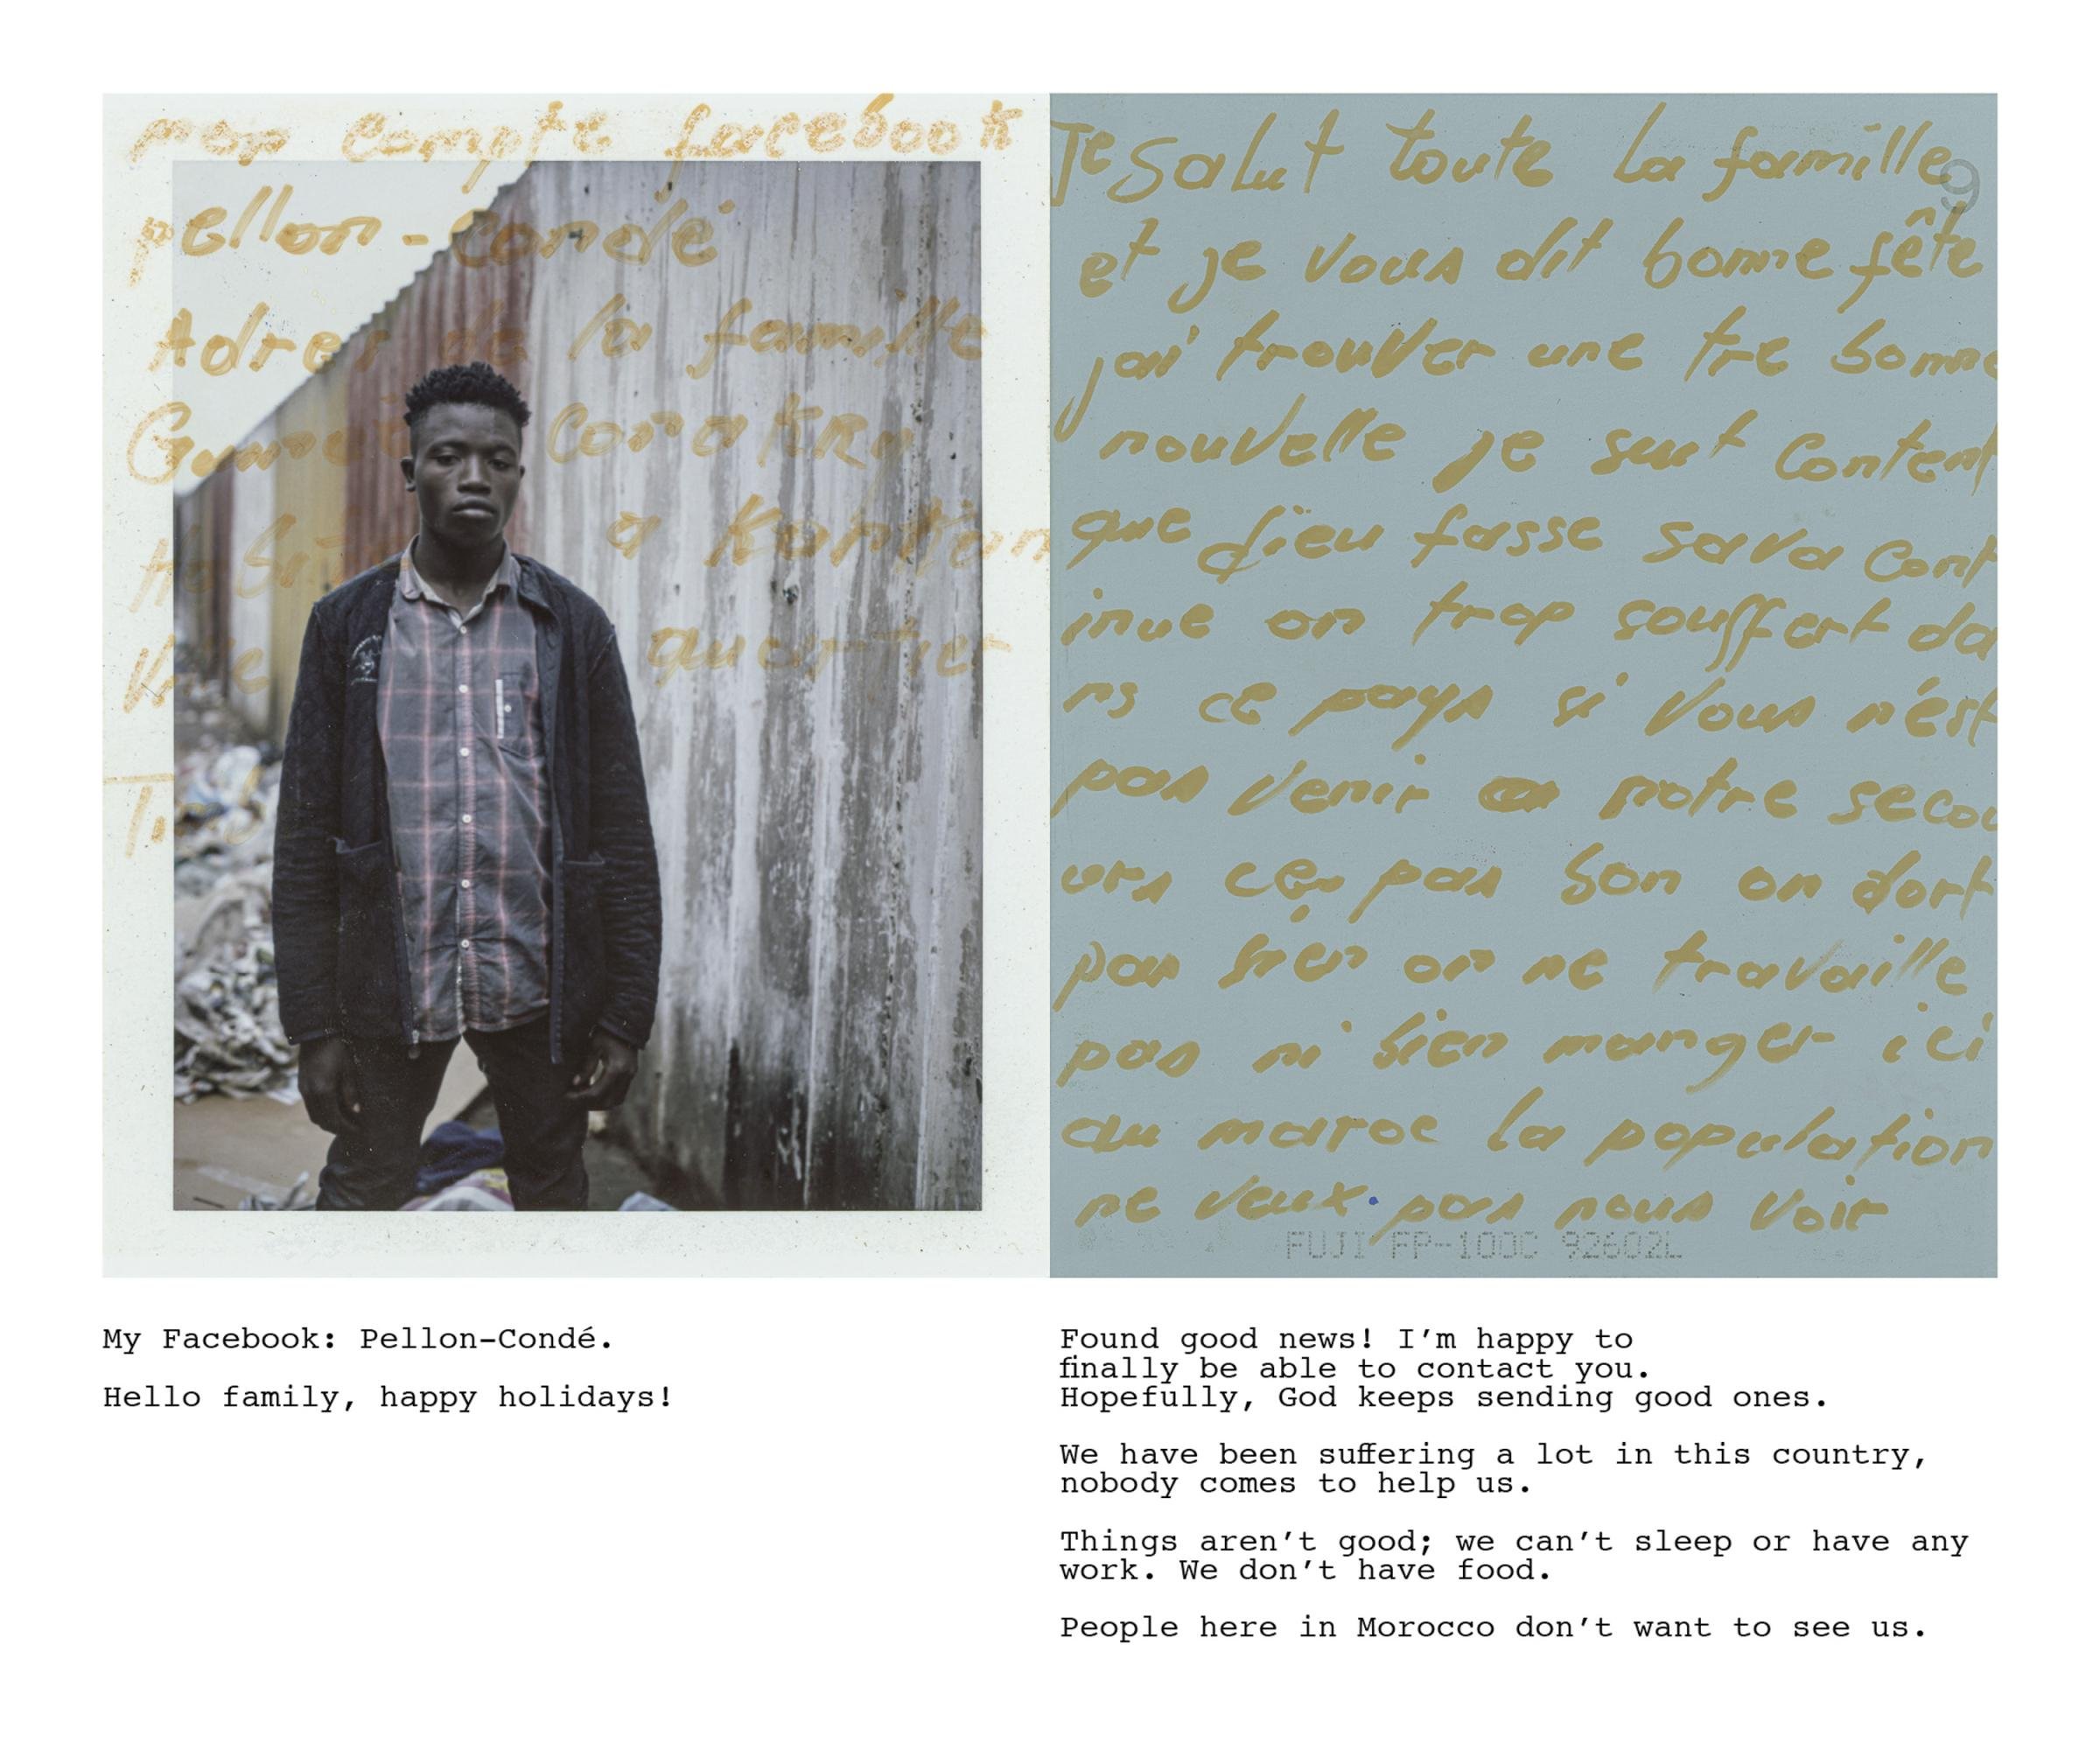 mon compte facebook
pellon-condé
Adres de la famille
Conakry
a
quartier
Je Salut toute la famille
9
et je vous dit bonne fête
j'ai trouver une tre bonne
nouvelle je suit content
que dieu fasse sava cont
inue on trop souffert da
ns ce pays si vous n'est
pas venir notre secou
urs ce pas bon on dort
pas bien on ne travaille
pas ni bien manger ici
au maroc la population
ne veux pas nous voir
FUJI FP-100C 92602L
My Facebook: Pellon-Condé.
Hello family, happy holidays!
Found good news! I’m happy to
finally be able to contact you.
Hopefully, God keeps sending good ones.
We have been suffering a lot in this country,
nobody comes to help us.
Things aren’t good; we can’t sleep or have any
work. We don’t have food.
People here in Morocco don’t want to see us.